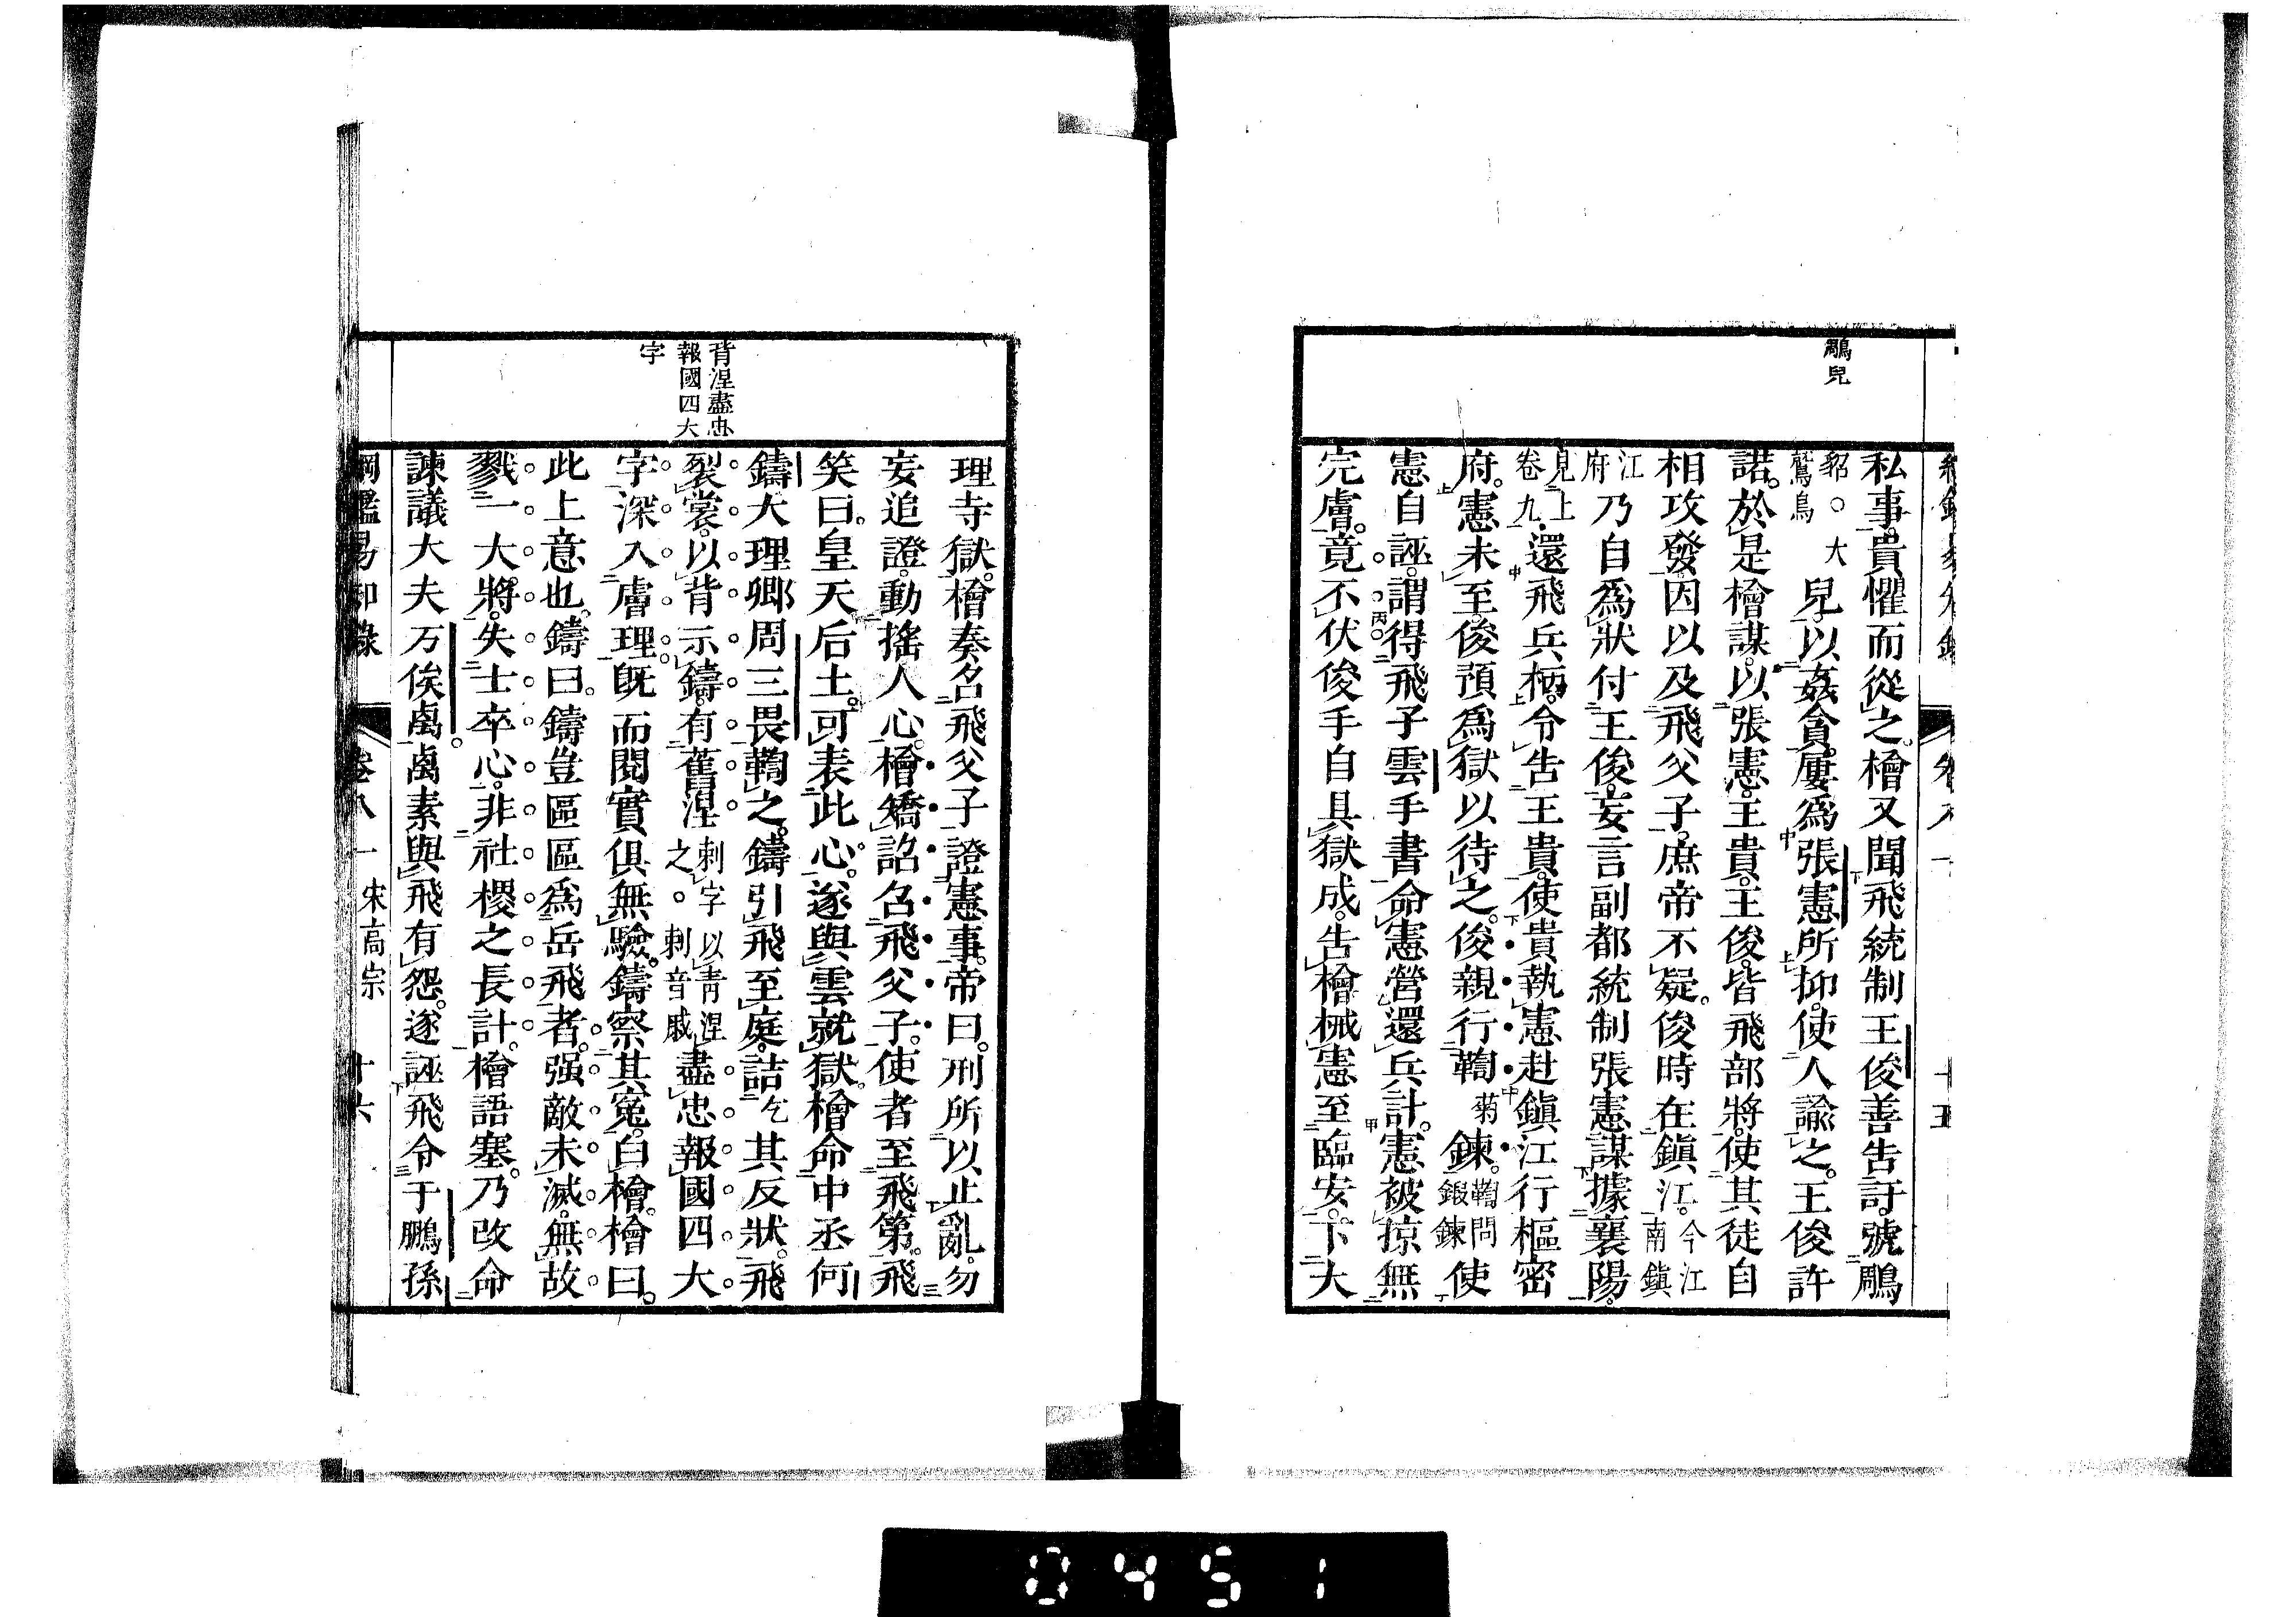 鵰兒
私事。貴懼而從之。檜又聞飛統制王俊善告訐。號鵰
貂○大鷲鳥兒。以姦貪。屢爲張憲所抑。使人諭之。王俊許
諾。於是檜謀。以張憲。王貴。王俊。皆飛部將。使其徒自
相攻發。因以及飛父子。庶帝不疑。俊時在鎭江。今江南鎭
江府乃自爲狀付王俊。妄言副都統制張憲謀據襄陽。
見上卷九還飛兵柄。令告王貴。使貴執憲赴鎭江行樞密
府。憲未至。俊預爲獄以待之。俊親行鞫菊鍊。鞫問鍛鍊使
憲自誣。謂得飛子雲手書。命憲營還兵計。憲被掠無
完膚。竟不伏。俊手自具獄成。告檜械憲至臨安。下大
背涅盡忠
報國四大
字
理寺獄。檜奏召飛父子證憲事。帝曰。刑所以止亂。勿
妄追證。動搖人心。檜矯詔召飛父子。使者至飛第。飛
笑曰。皇天后土。可表此心。遂與雲就獄。檜命中丞何
鑄大理卿周三畏鞫之。鑄引飛至庭。詰乞其反狀。飛
裂裳。以背示鑄。有舊涅刺字以靑涅之。○刺音戚盡忠報國四大
字。深入膚理。旣而閱實俱無驗。鑄察其冤。白檜。檜曰。
此上意也。鑄曰。鑄豈區區爲岳飛者。强敵未滅。無故
戮一大將。失士卒心。非社稷之長計。檜語塞。乃改命
諫議大夫万俟卨。卨素與飛有怨。遂誣飛令于鵬孫
綱鑑易知錄 卷八一 宋高宗 十六
0451